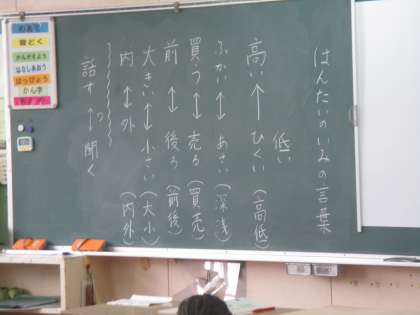 はんたいのいみの言葉
低い
高い ←→ ひくい (高低)
ふかい ←→ あさい (深浅)
買う ←→ 売る (買売)
前 ←→ 後ろ (前後)
大きい ←→ 小さい (大小)
内 ←→ 外 (内外)
話す ←→ 聞く
?
めあて
音どく
かんがえよう
はなしあおう
はっぴょう
かん字